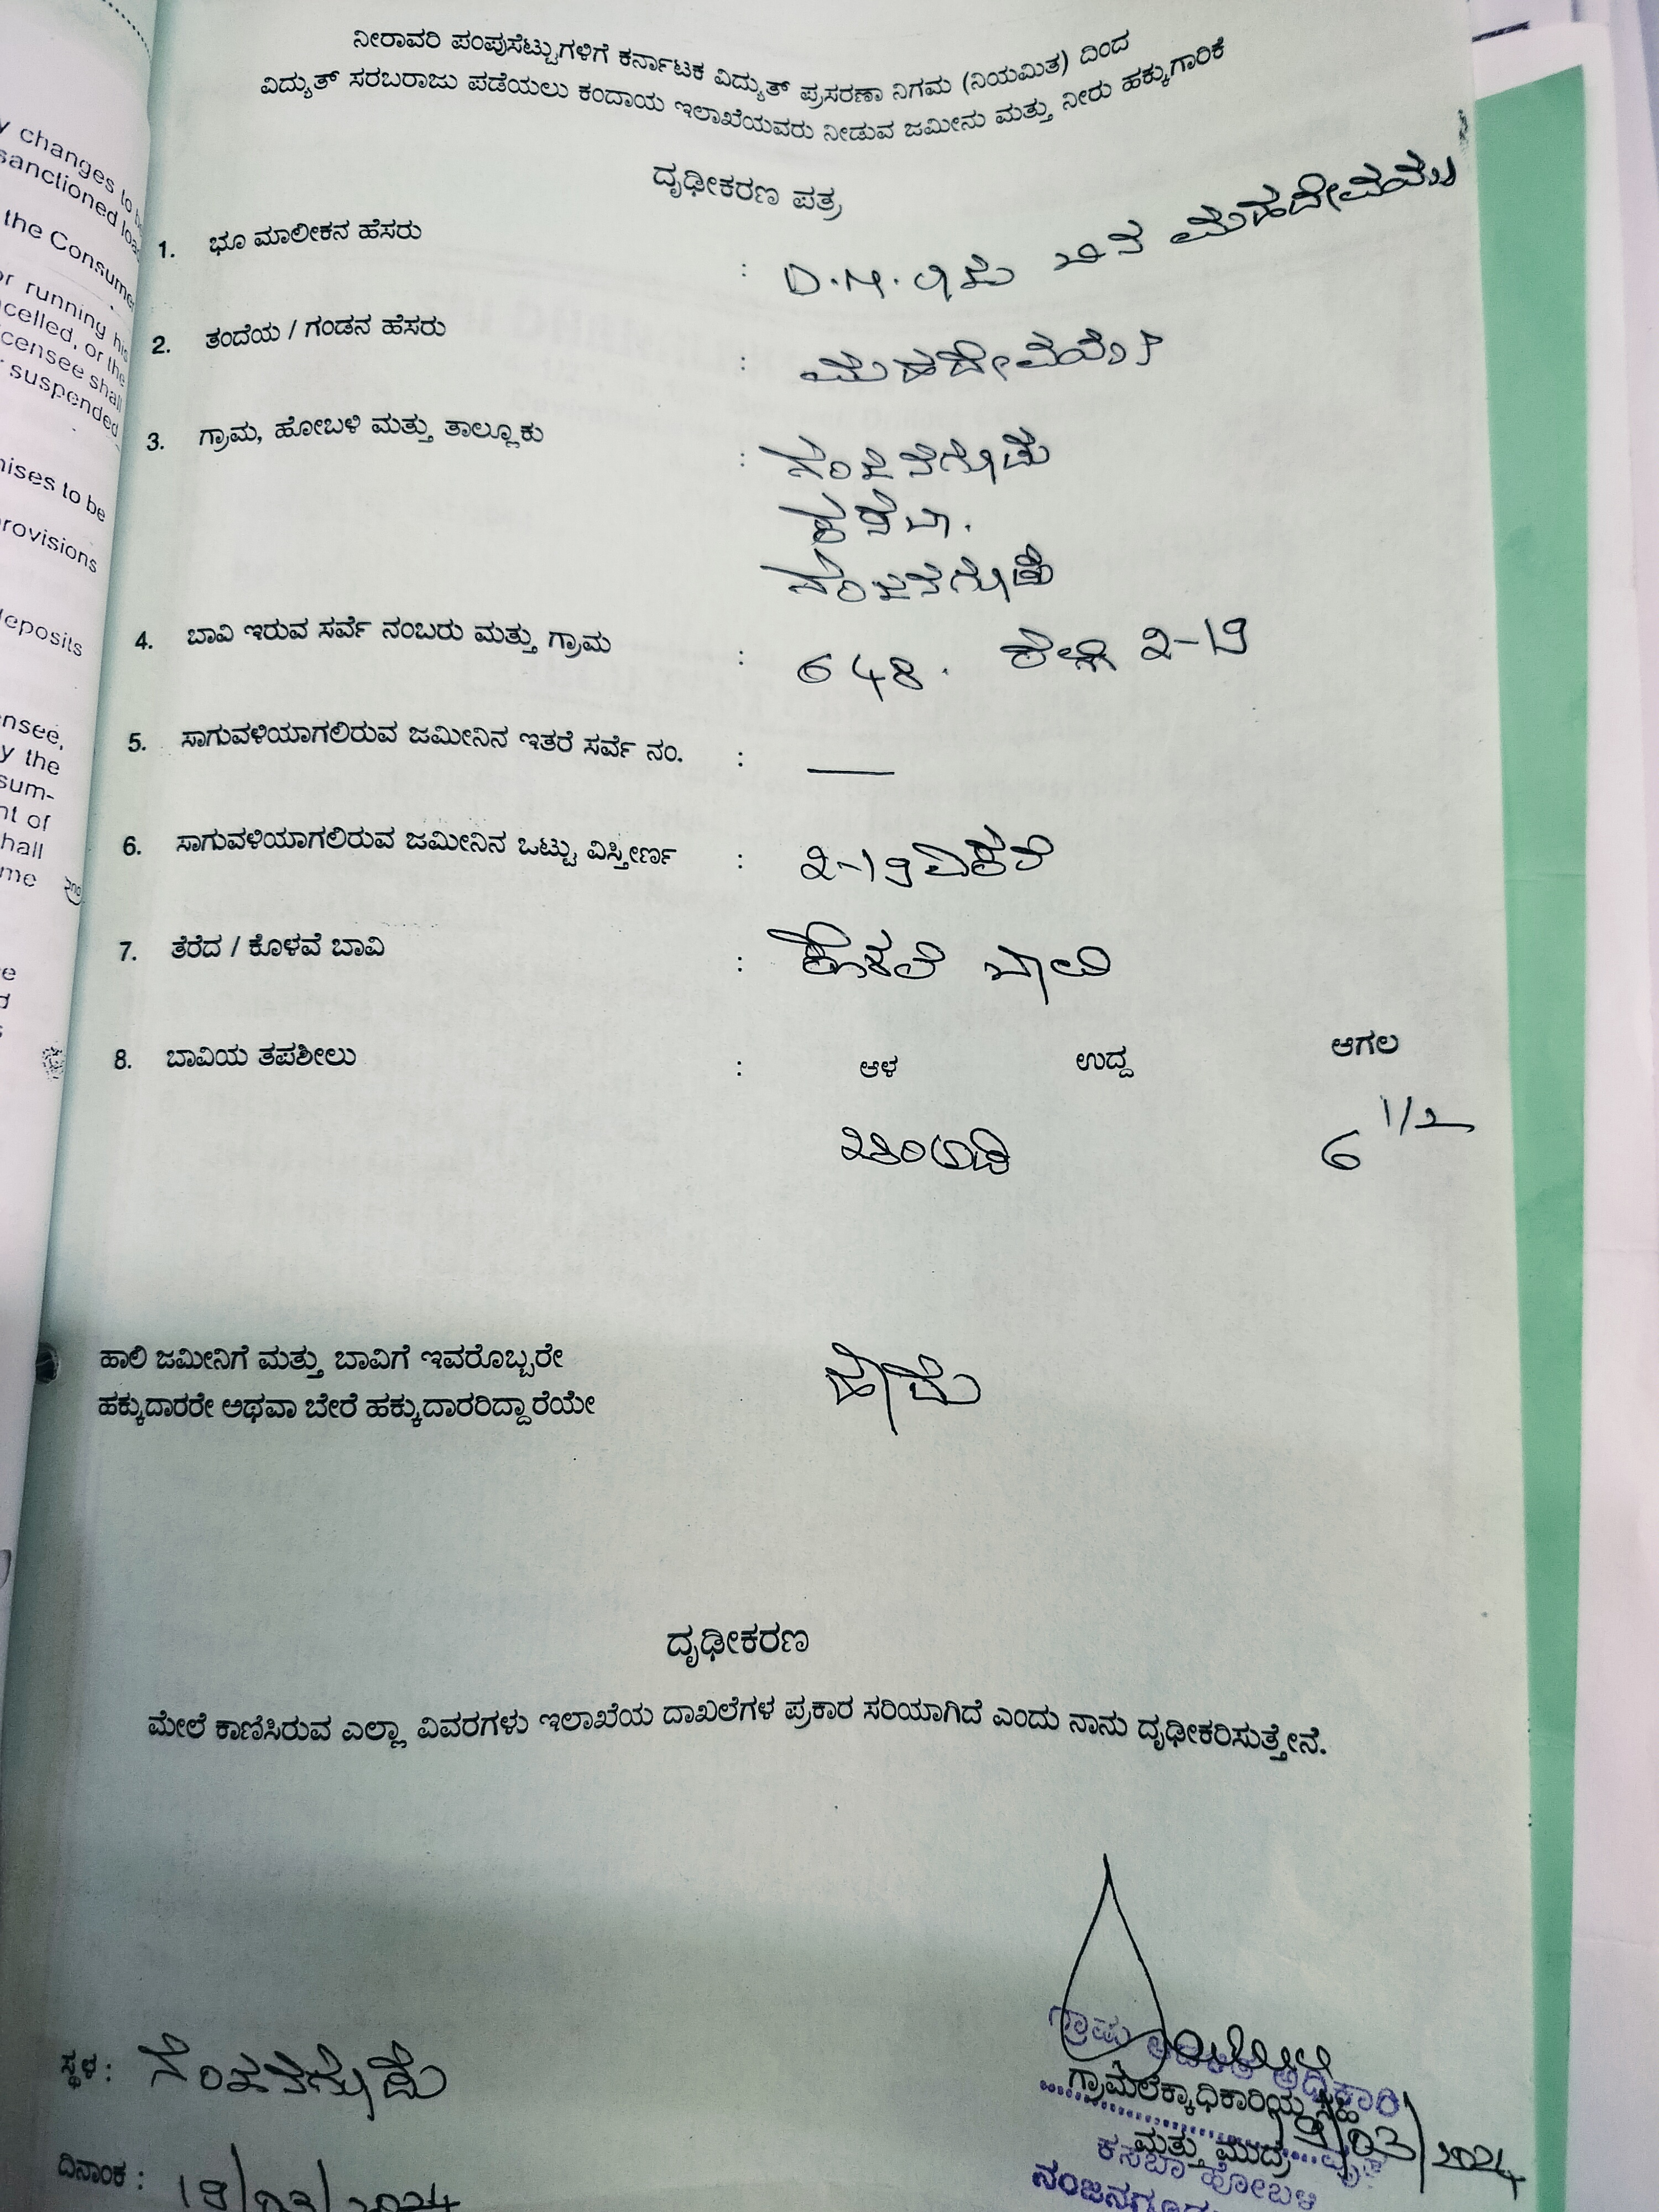 y changes to
sanctioned load
the Consumer
or running his
celled, or the
icensee shall
suspended
nises to be
rovisions
deposits
ensee,
y the
sum-
nt of
hall
me
ನೀರಾವರಿ ಪಂಪುಸೆಟ್ಟುಗಳಿಗೆ ಕರ್ನಾಟಕ ವಿದ್ಯುತ್ ಪ್ರಸರಣಾ ನಿಗಮ (ನಿಯಮಿತ) ದಿಂದ
ವಿದ್ಯುತ್ ಸರಬರಾಜು ಪಡೆಯಲು ಕಂದಾಯ ಇಲಾಖೆಯವರು ನೀಡುವ ಜಮೀನು ಮತ್ತು ನೀರು ಹಕ್ಕುಗಾರಿಕೆ
ದೃಢೀಕರಣ ಪತ್ರ
1. ಭೂ ಮಾಲೀಕನ ಹೆಸರು : D.M. ಬಿನ್
2. ತಂದೆಯ / ಗಂಡನ ಹೆಸರು : ಮಹದೇವಯ್ಯ
3. ಗ್ರಾಮ, ಹೋಬಳಿ ಮತ್ತು ತಾಲ್ಲೂಕು : ನಂಜನಗೂಡು
ಕಸಬಾ.
ನಂಜನಗೂಡು
4. ಬಾವಿ ಇರುವ ಸರ್ವೆ ನಂಬರು ಮತ್ತು ಗ್ರಾಮ : 648. 2-19
5. ಸಾಗುವಳಿಯಾಗಲಿರುವ ಜಮೀನಿನ ಇತರೆ ಸರ್ವೆ ನಂ. : —
6. ಸಾಗುವಳಿಯಾಗಲಿರುವ ಜಮೀನಿನ ಒಟ್ಟು ವಿಸ್ತೀರ್ಣ : 2-19 ಎಕರೆ
7. ತೆರೆದ / ಕೊಳವೆ ಬಾವಿ : ಕೊಳವೆ ಬಾವಿ
8. ಬಾವಿಯ ತಪಶೀಲು : ಆಳ ಉದ್ದ ಆಗಲ
ಅಡಿ 6 1/2
ಹಾಲಿ ಜಮೀನಿಗೆ ಮತ್ತು ಬಾವಿಗೆ ಇವರೊಬ್ಬರೇ
ಹಕ್ಕುದಾರರೇ ಅಥವಾ ಬೇರೆ ಹಕ್ಕುದಾರರಿದ್ದಾರೆಯೇ : ಹೌದು
ದೃಢೀಕರಣ
ಮೇಲೆ ಕಾಣಿಸಿರುವ ಎಲ್ಲಾ ವಿವರಗಳು ಇಲಾಖೆಯ ದಾಖಲೆಗಳ ಪ್ರಕಾರ ಸರಿಯಾಗಿದೆ ಎಂದು ನಾನು ದೃಢೀಕರಿಸುತ್ತೇನೆ.
ಗ್ರಾಮ ಆಡಳಿತ ಅಧಿಕಾರಿ
ಗ್ರಾಮಲೆಕ್ಕಾಧಿಕಾರಿಯ ಸಹಿ
ಮತ್ತು ಮುದ್ರೆ 19/03/2024
ಕಸಬಾ ಹೋಬಳಿ
ಸ್ಥಳ : ನಂಜನಗೂಡು
ದಿನಾಂಕ : 19/03/2024